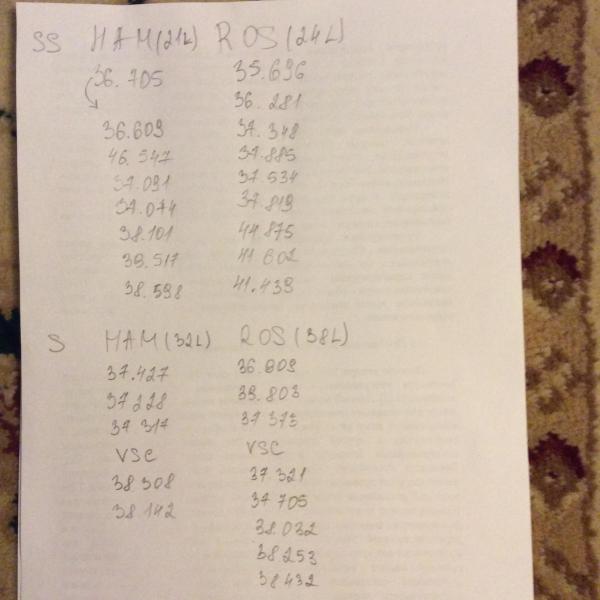 SS HAM(21L) ROS(24L)
36.705 35.696
36.281
36.609 37.348
46.547 37.885
37.091 37.534
37.074 37.819
38.101 44.875
39.517 41.602
38.598 41.439
S HAM(32L) ROS(38L)
37.427 36.809
37.228 39.803
37.317 37.373
VSC VSC
38.308 37.321
38.142 37.705
38.032
38.253
38.432